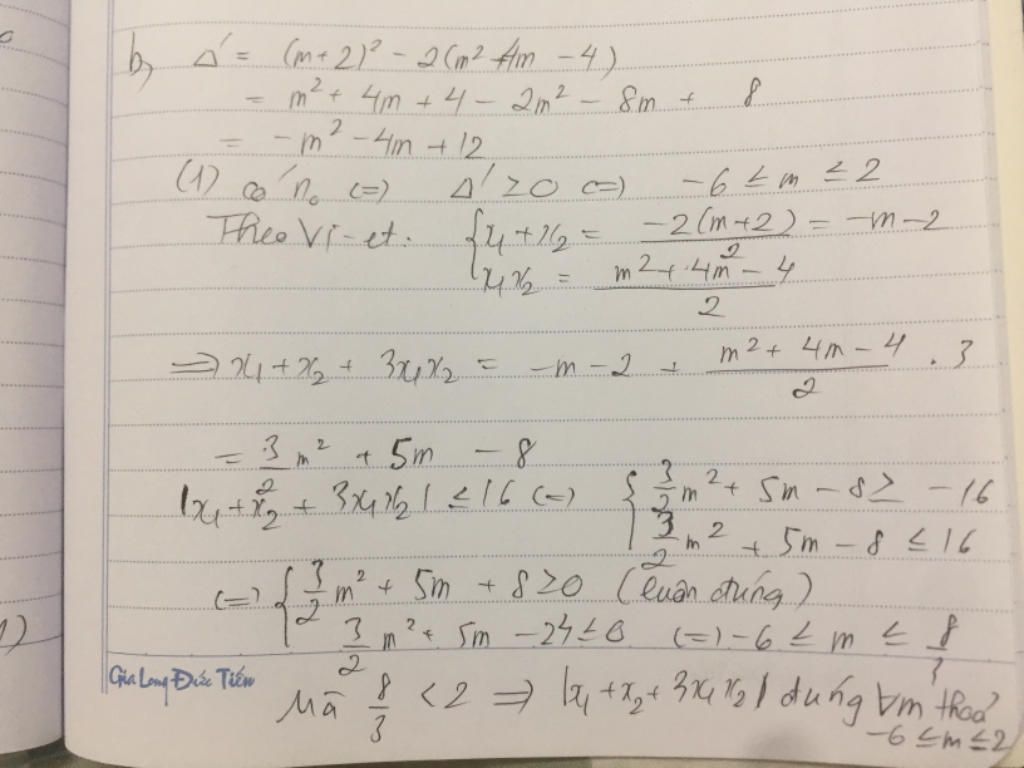 b, Δ' = (m+2)² - 2(m² + 4m - 4)
= m² + 4m + 4 - 2m² - 8m + 8
= -m² - 4m + 12
(1) có n₀ <=> Δ' ≥ 0 <=> -6 ≤ m ≤ 2
Theo Vi-et. { x₁ + x₂ = -2(m+2)/2 = -m - 2
x₁x₂ = (m² + 4m - 4)/2
=> x₁ + x₂ + 3x₁x₂ = -m - 2 + (m² + 4m - 4)/2 . 3
= 3/2 m² + 5m - 8
|x₁ + x₂ + 3x₁x₂| ≤ 16 <=> { 3/2 m² + 5m - 8 ≥ -16
3/2 m² + 5m - 8 ≤ 16
<=> { 3/2 m² + 5m + 8 ≥ 0 (luôn đúng)
3/2 m² + 5m - 24 ≤ 0 <=> -6 ≤ m ≤ 8/3
Gia Long Đức Tiến
Mà 8/3 < 2 => |x₁ + x₂ + 3x₁x₂| đúng ∀m thoả
-6 ≤ m ≤ 2
1)